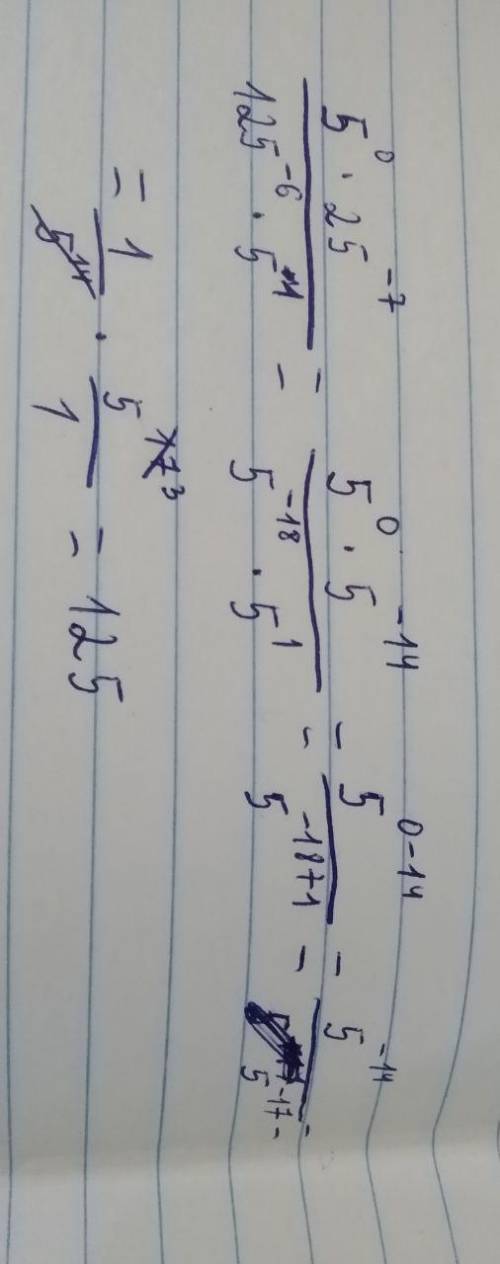 5⁰ · 25⁻⁷ / 125⁻⁶ · 5¹ = 5⁰ · 5⁻¹⁴ / 5⁻¹⁸ · 5¹ = 5⁰⁻¹⁴ / 5⁻¹⁸⁺¹ = 5⁻¹⁴ / 5⁻¹⁷ =
= 1 / 5¹⁴ · 5¹⁷ ³ / 1 = 125